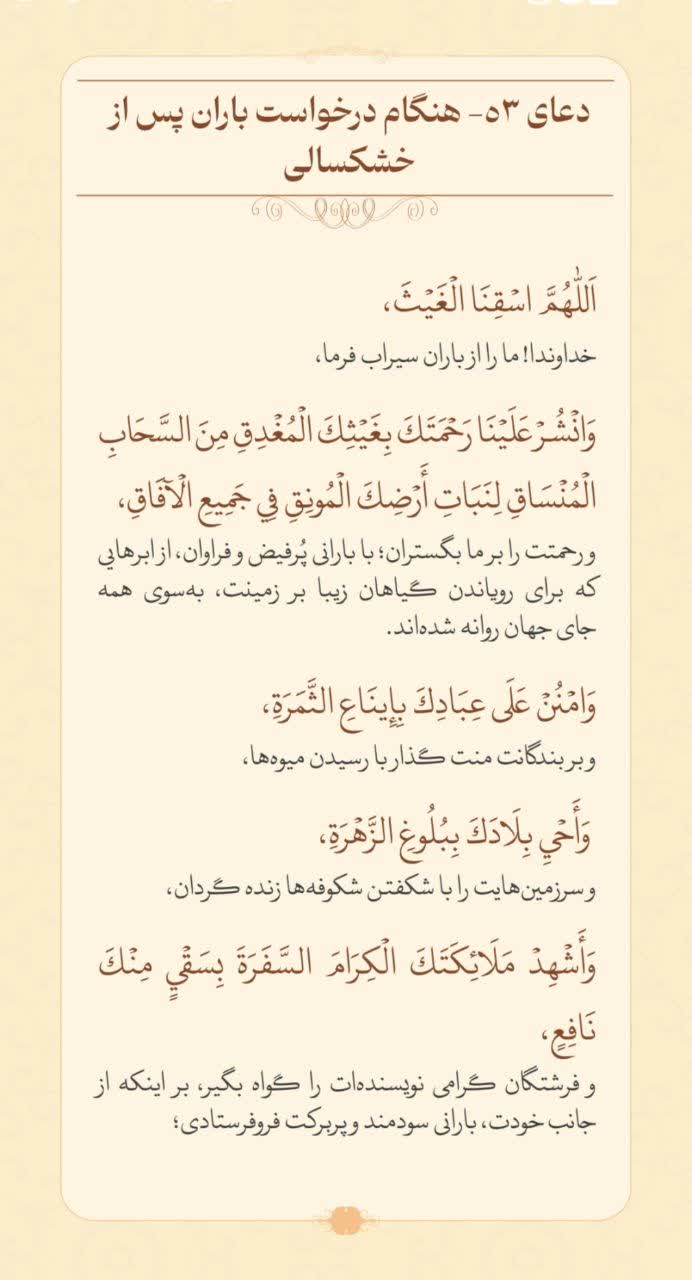 دعای ۵۳- هنگام درخواست باران پس از
خشکسالی
اَللّٰهُمَّ اسْقِنَا الْغَيْثَ،
خداوندا! ما را از باران سیراب فرما،
وَانْشُرْ عَلَيْنَا رَحْمَتَكَ بِغَيْثِكَ الْمُغْدِقِ مِنَ السَّحَابِ
الْمُنْسَاقِ لِنَبَاتِ أَرْضِكَ الْمُونِقِ فِي جَمِيعِ الْآفَاقِ،
و رحمتت را بر ما بگستران؛ با بارانی پُرفیض و فراوان، از ابرهایی
که برای رویاندن گیاهان زیبا بر زمینت، به‌سوی همه
جای جهان روانه شده‌اند.
وَامْنُنْ عَلَى عِبَادِكَ بِإِينَاعِ الثَّمَرَةِ،
و بر بندگانت منت گذار با رسیدن میوه‌ها،
وَأَحْيِ بِلَادَكَ بِبُلُوغِ الزَّهْرَةِ،
و سرزمین‌هایت را با شکفتن شکوفه‌ها زنده گردان،
وَأَشْهِدْ مَلَائِكَتَكَ الْكِرَامَ السَّفَرَةَ بِسَقْيٍ مِنْكَ
نَافِعٍ،
و فرشتگان گرامی نویسنده‌ات را گواه بگیر، بر اینکه از
جانب خودت، بارانی سودمند و پربرکت فروفرستادی؛